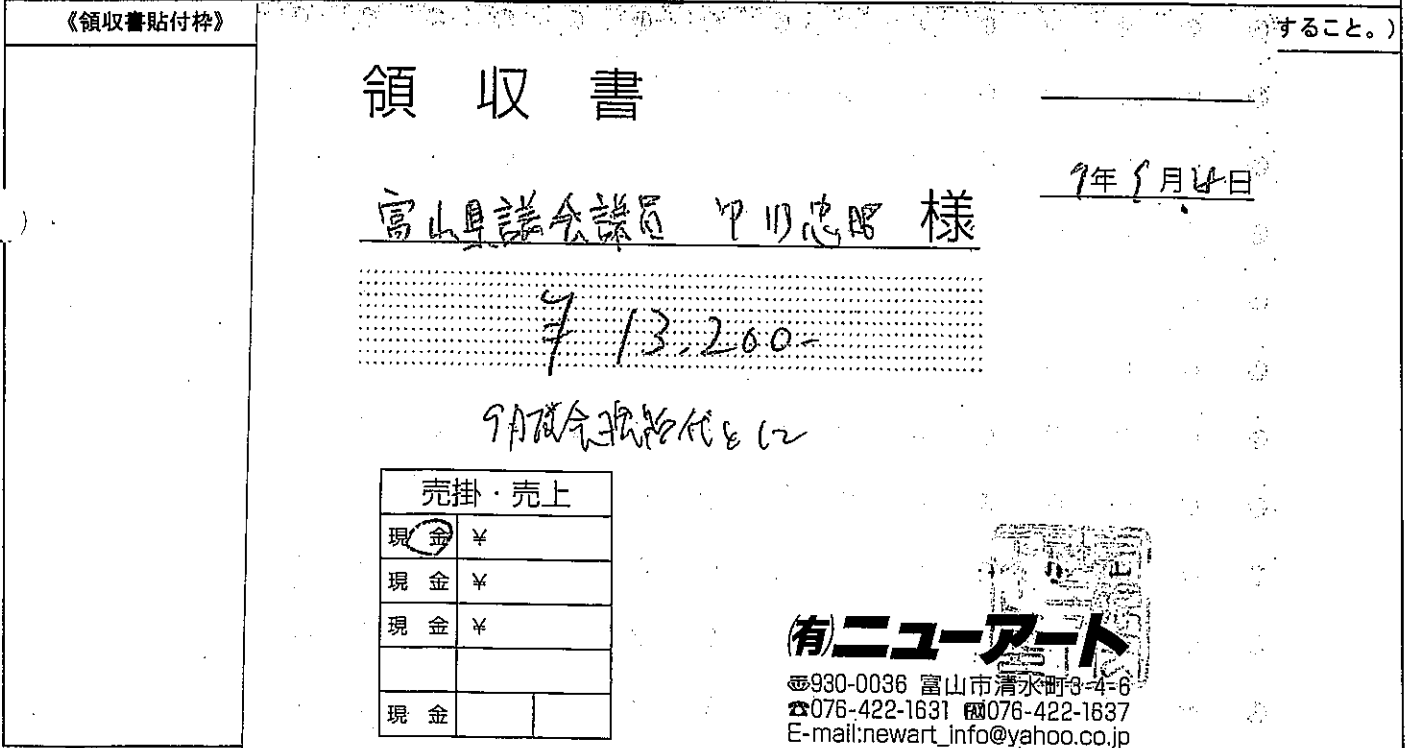 《領収書貼付枠》
すること。)
領 収 書
年 月 日
富山県議会議員 忠昭 様
¥ 13,200-
9月議会 代として
売掛・売上
現 金 ¥
現 金 ¥
現 金 ¥
現 金
(有)ニューアート
〠930-0036 富山市清水町3-4-6
☎076-422-1631 FAX076-422-1637
E-mail:newart_info@yahoo.co.jp